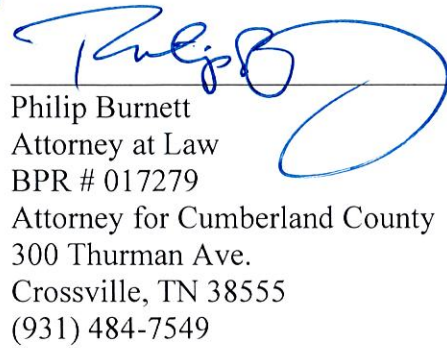 Philip B
Philip Burnett
Attorney at Law
BPR # 017279
Attorney for Cumberland County
300 Thurman Ave.
Crossville, TN 38555
(931) 484-7549